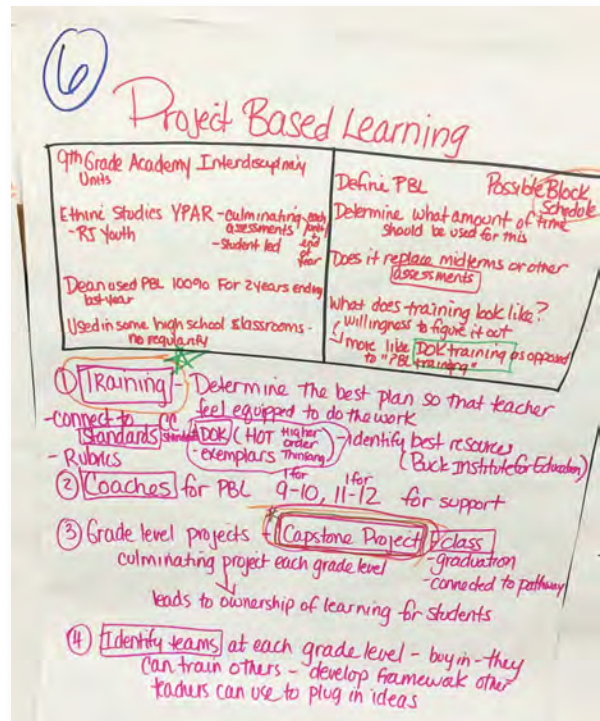 6
Project Based Learning
9th Grade Academy Interdisciplinary
Units
Ethinic Studies YPAR - culminating
assessments
each
unit
to
end
of
year
- RJ Youth
- Student led
Dean used PBL 100% For 2 years ending
last year
Used in some high school classrooms -
no regularity
Define PBL
Possible Block
Schedule
Determine what amount of time
should be used for this
Does it replace midterms or other
assessments
What does training look like?
willingness to figure it out
more like DOK training as opposed
to "PBL training"
① Training - Determine the best plan so that teacher
feel equipped to do the work
- connect to CC
standards
standards
DOK (HOT Higher
order
Thinking
- exemplars
- identify best resources
(Buck Institute for Education)
- Rubrics
② Coaches for PBL 1 for 9-10, 1 for 11-12 for support
③ Grade level projects - Capstone Project class
culminating project each grade level
- graduation
- connected to pathway
leads to ownership of learning for students
④ Identify teams at each grade level - buy in - they
can train others - develop framewak other
teachers can use to plug in ideas